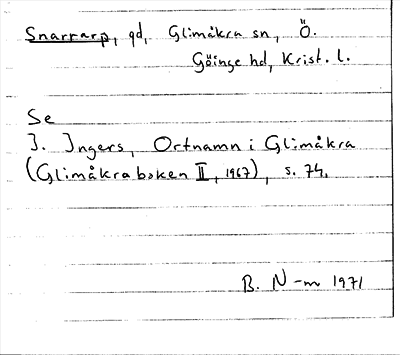 Snarrarp, gd, Glimåkra sn, Ö.
Göinge hd, Krist. l.
Se
I. Ingers, Ortnamn i Glimåkra
(Glimåkraboken II, 1967), s. 74.
B. N-m 1971